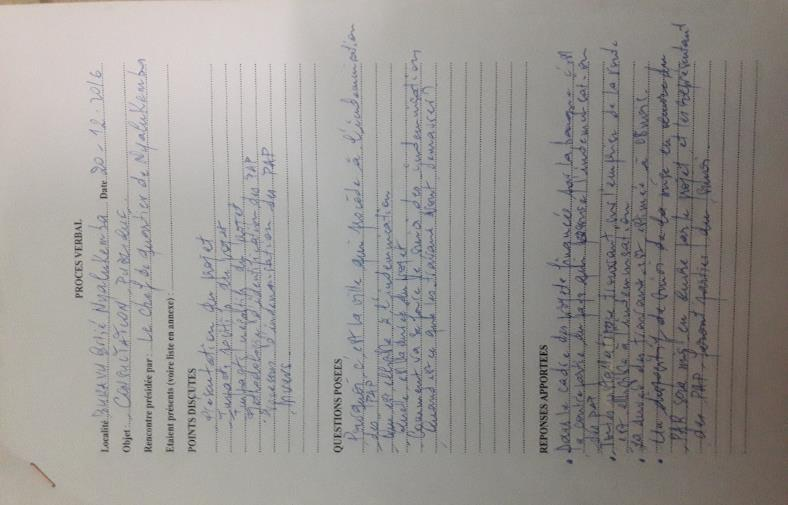 PROCES VERBAL
Localité BUKAVU Cité Nyalukemba Date 20-12-2016
Objet : CONSULTATION PUBLIQUE
Rencontre présidée par : Le Chef de quartier de Nyalukemba
Etaient présents (voire liste en annexe) :
POINTS DISCUTES
- Présentation du projet
- Impacts positifs du projet
- Impacts négatifs du projet
- Méthodologie d'identification des PAP
- Processus d'indemnisation des PAP
- Divers
QUESTIONS POSEES
- Pourquoi c'est la ville qui procède à l'indemnisation
des PAP
- Qui est eligible à l'indemnisation
- Quelle est la durée du projet
- Comment va se faire le suivi des indemnisations
- Quand est ce que les travaux vont demarrer?
REPONSES APPORTEES
• Dans le cadre des projets financés par la banque c'est
la contre partie du pays qui l'indemnisation
des pap
• Toute se trouvant sur l'emprise de la route
est eligible à l'indemnisation
• La durée des travaux est estimée à 08 mois.
• Un dispositif de suivi de la mise en oeuvre du
PAR sera mis en oeuvre par le projet et les representant
des PAP seront parties du suivi.